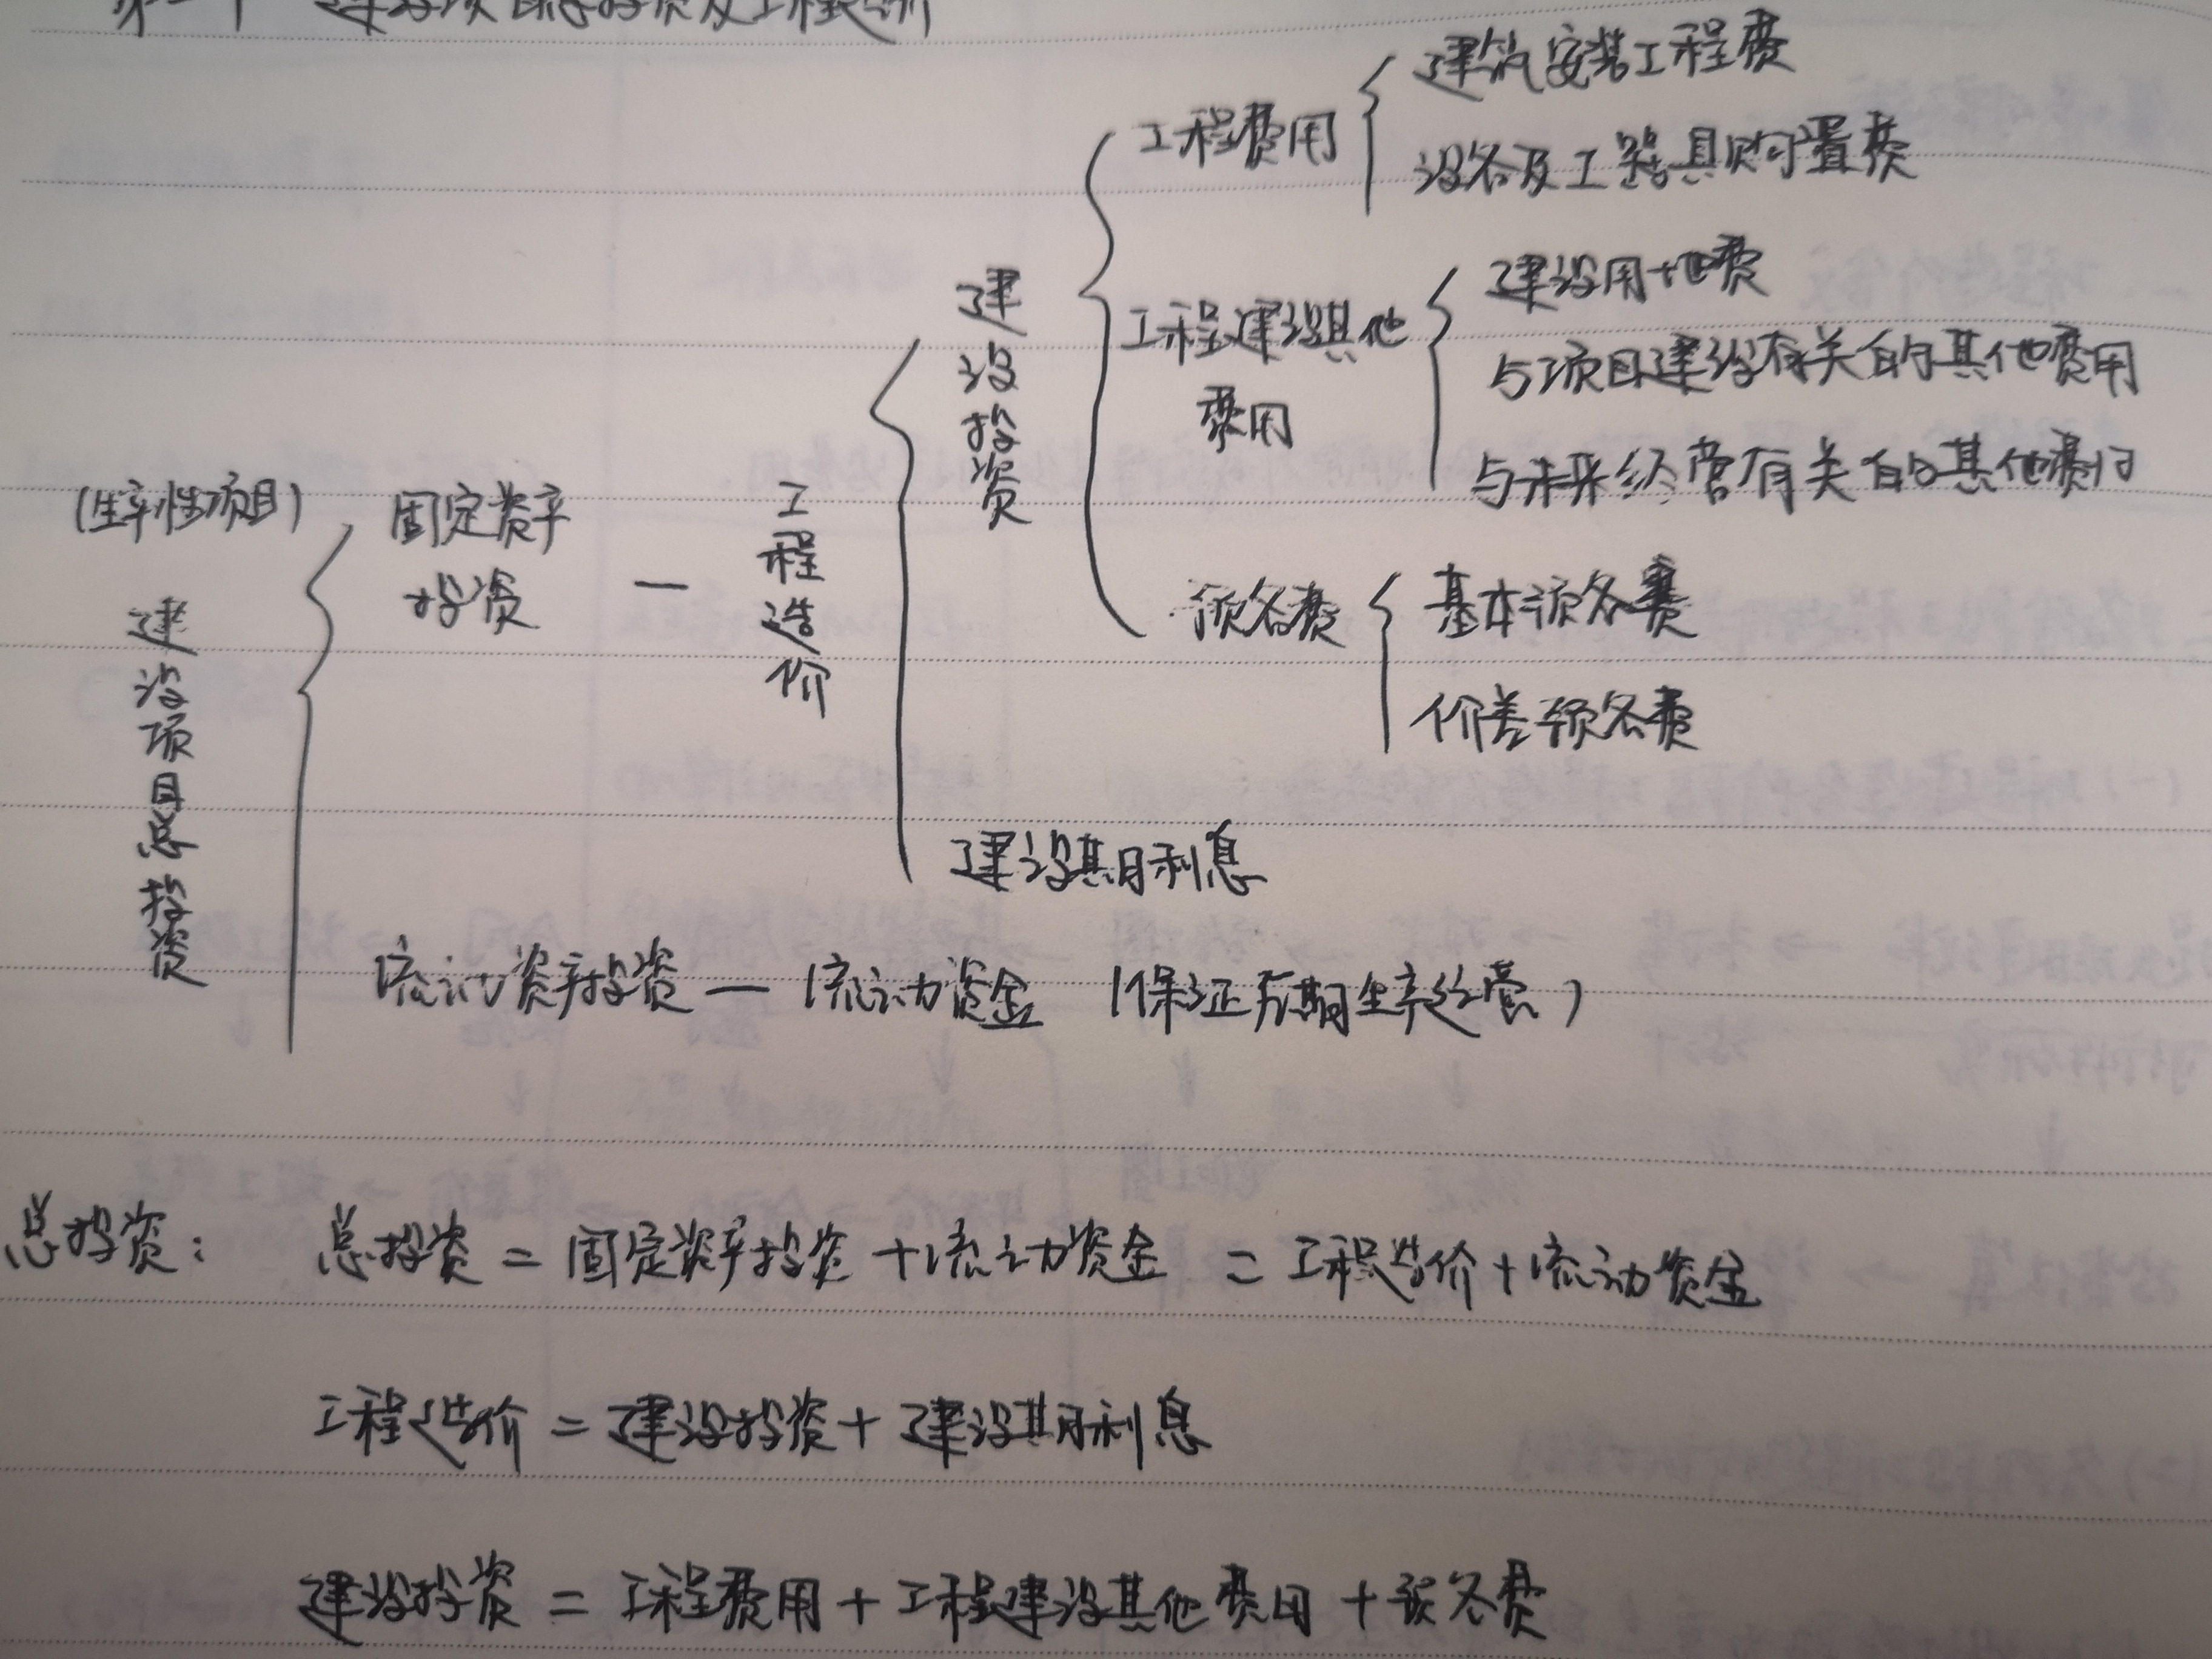 建设项目总投资及工程造价
建筑安装工程费
工程费用
设备及工器具购置费
建设用地费
建设投资
工程建设其他
费用
与项目建设有关的其他费用
与未来经营有关的其他费用
(生产性项目)
固定资产
投资
—
工程造价
预备费
基本预备费
价差预备费
建设项目总投资
建设期利息
流动资产投资 — 流动资金 (保证后期生产经营)
总投资: 总投资 = 固定资产投资 + 流动资金 = 工程造价 + 流动资金
工程造价 = 建设投资 + 建设期利息
建设投资 = 工程费用 + 工程建设其他费用 + 预备费